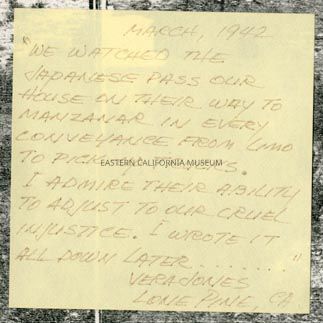 MARCH, 1942
"WE WATCHED THE
JAPANESE PASS OUR
HOUSE ON THEIR WAY TO
MANZANAR IN EVERY
CONVEYANCE FROM LIMO
TO PICKUP TRUCKS.
EASTERN CALIFORNIA MUSEUM
I ADMIRE THEIR ABILITY
TO ADJUST TO OUR CRUEL
INJUSTICE. I WROTE IT
ALL DOWN LATER . . . . . . . "
VERA JONES
LONE PINE, CA.